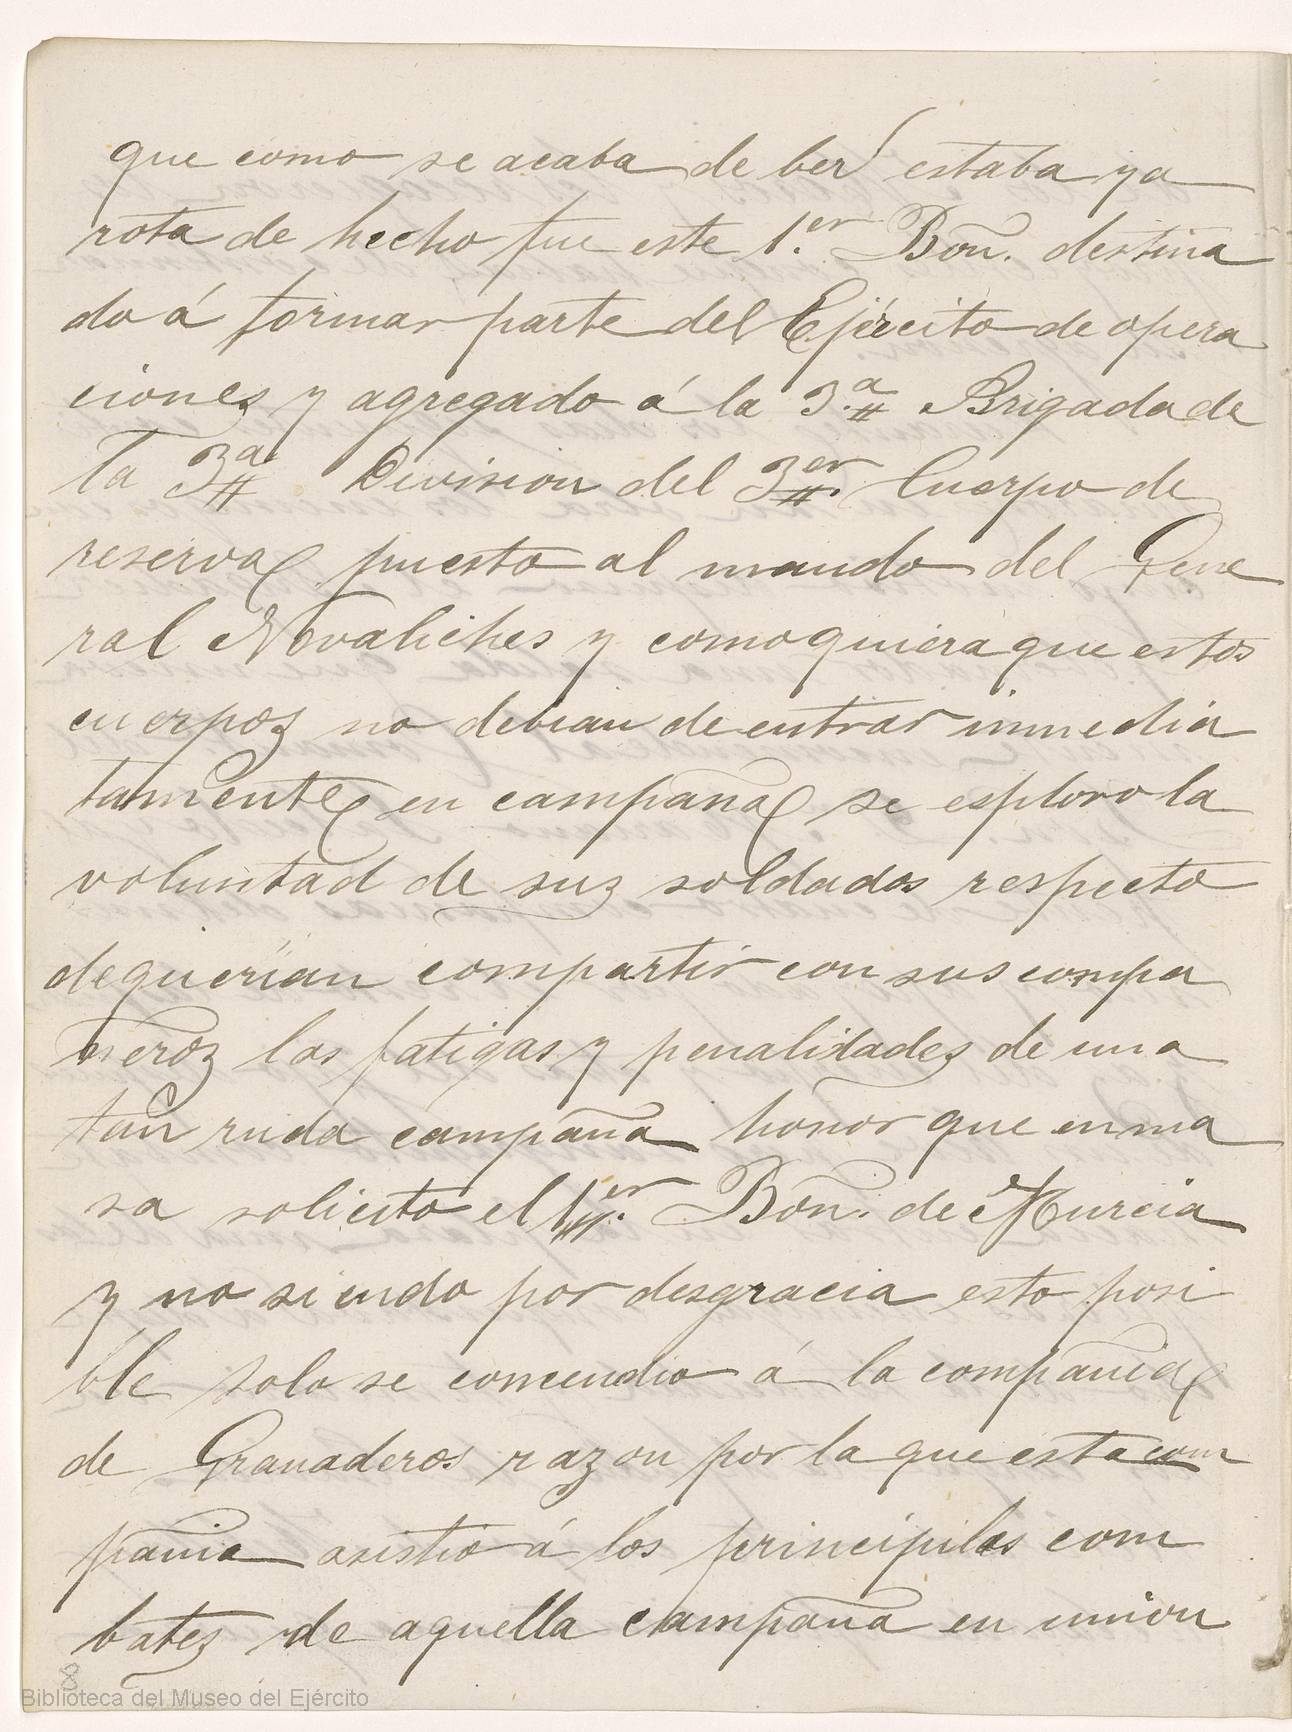 que como se acaba de ber estaba ya
rota de hecho fue este 1.er Bon. destina
do á formar parte del Ejército de opera
ciones y agregado á la 3.a Brigada de
la 3a Division del 3er Cuerpo de
reserva puesto al mando del Gene
ral Novaliches y como quiera que estos
cuerpos no debian de entrar inmedia
tamente en campaña se esploro la
voluntad de sus soldados respecto
de querian compartir con sus compa
ñeros las fatigas y penalidades de una
tan ruda campaña honor que en ma
sa solicito el 1er. Bon. de Murcia
y no siendo por desgracia esto posi
ble solo se concendio á la compañia
de Granaderos razon por la que esta com
pañia asistio á los principiles com
bates de aquella campaña en union
8
Biblioteca del Museo del Ejército